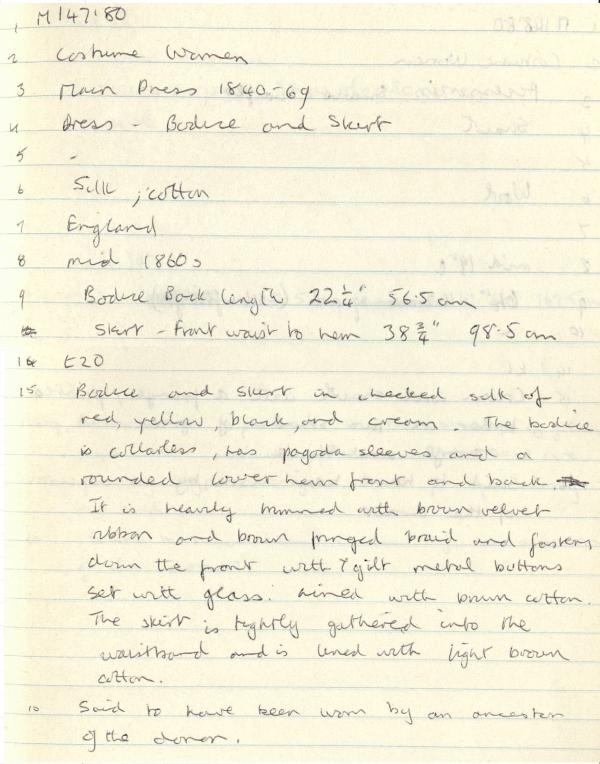 1 M147'80
2 Costume Women
3 Main Dress 1840-69
4 Dress - Bodice and Skirt
5 -
6 Silk ; cotton
7 England
8 mid 1860s
9 Bodice Back length 22 1/4" 56.5cm
Skirt - front waist to hem 38 3/4" 98.5cm
14 £20
15 Bodice and skirt in checked silk of
red, yellow, black, and cream. The bodice
is collarless, has pagoda sleeves and a
rounded lower hem front and back.
It is heavily trimmed with brown velvet
ribbon and brown fringed braid and fastens
down the front with 7 gilt metal buttons
set with glass. Lined with brown cotton.
The skirt is tightly gathered into the
waistband and is lined with light brown
cotton.
10 Said to have been worn by an ancestor
of the donor.